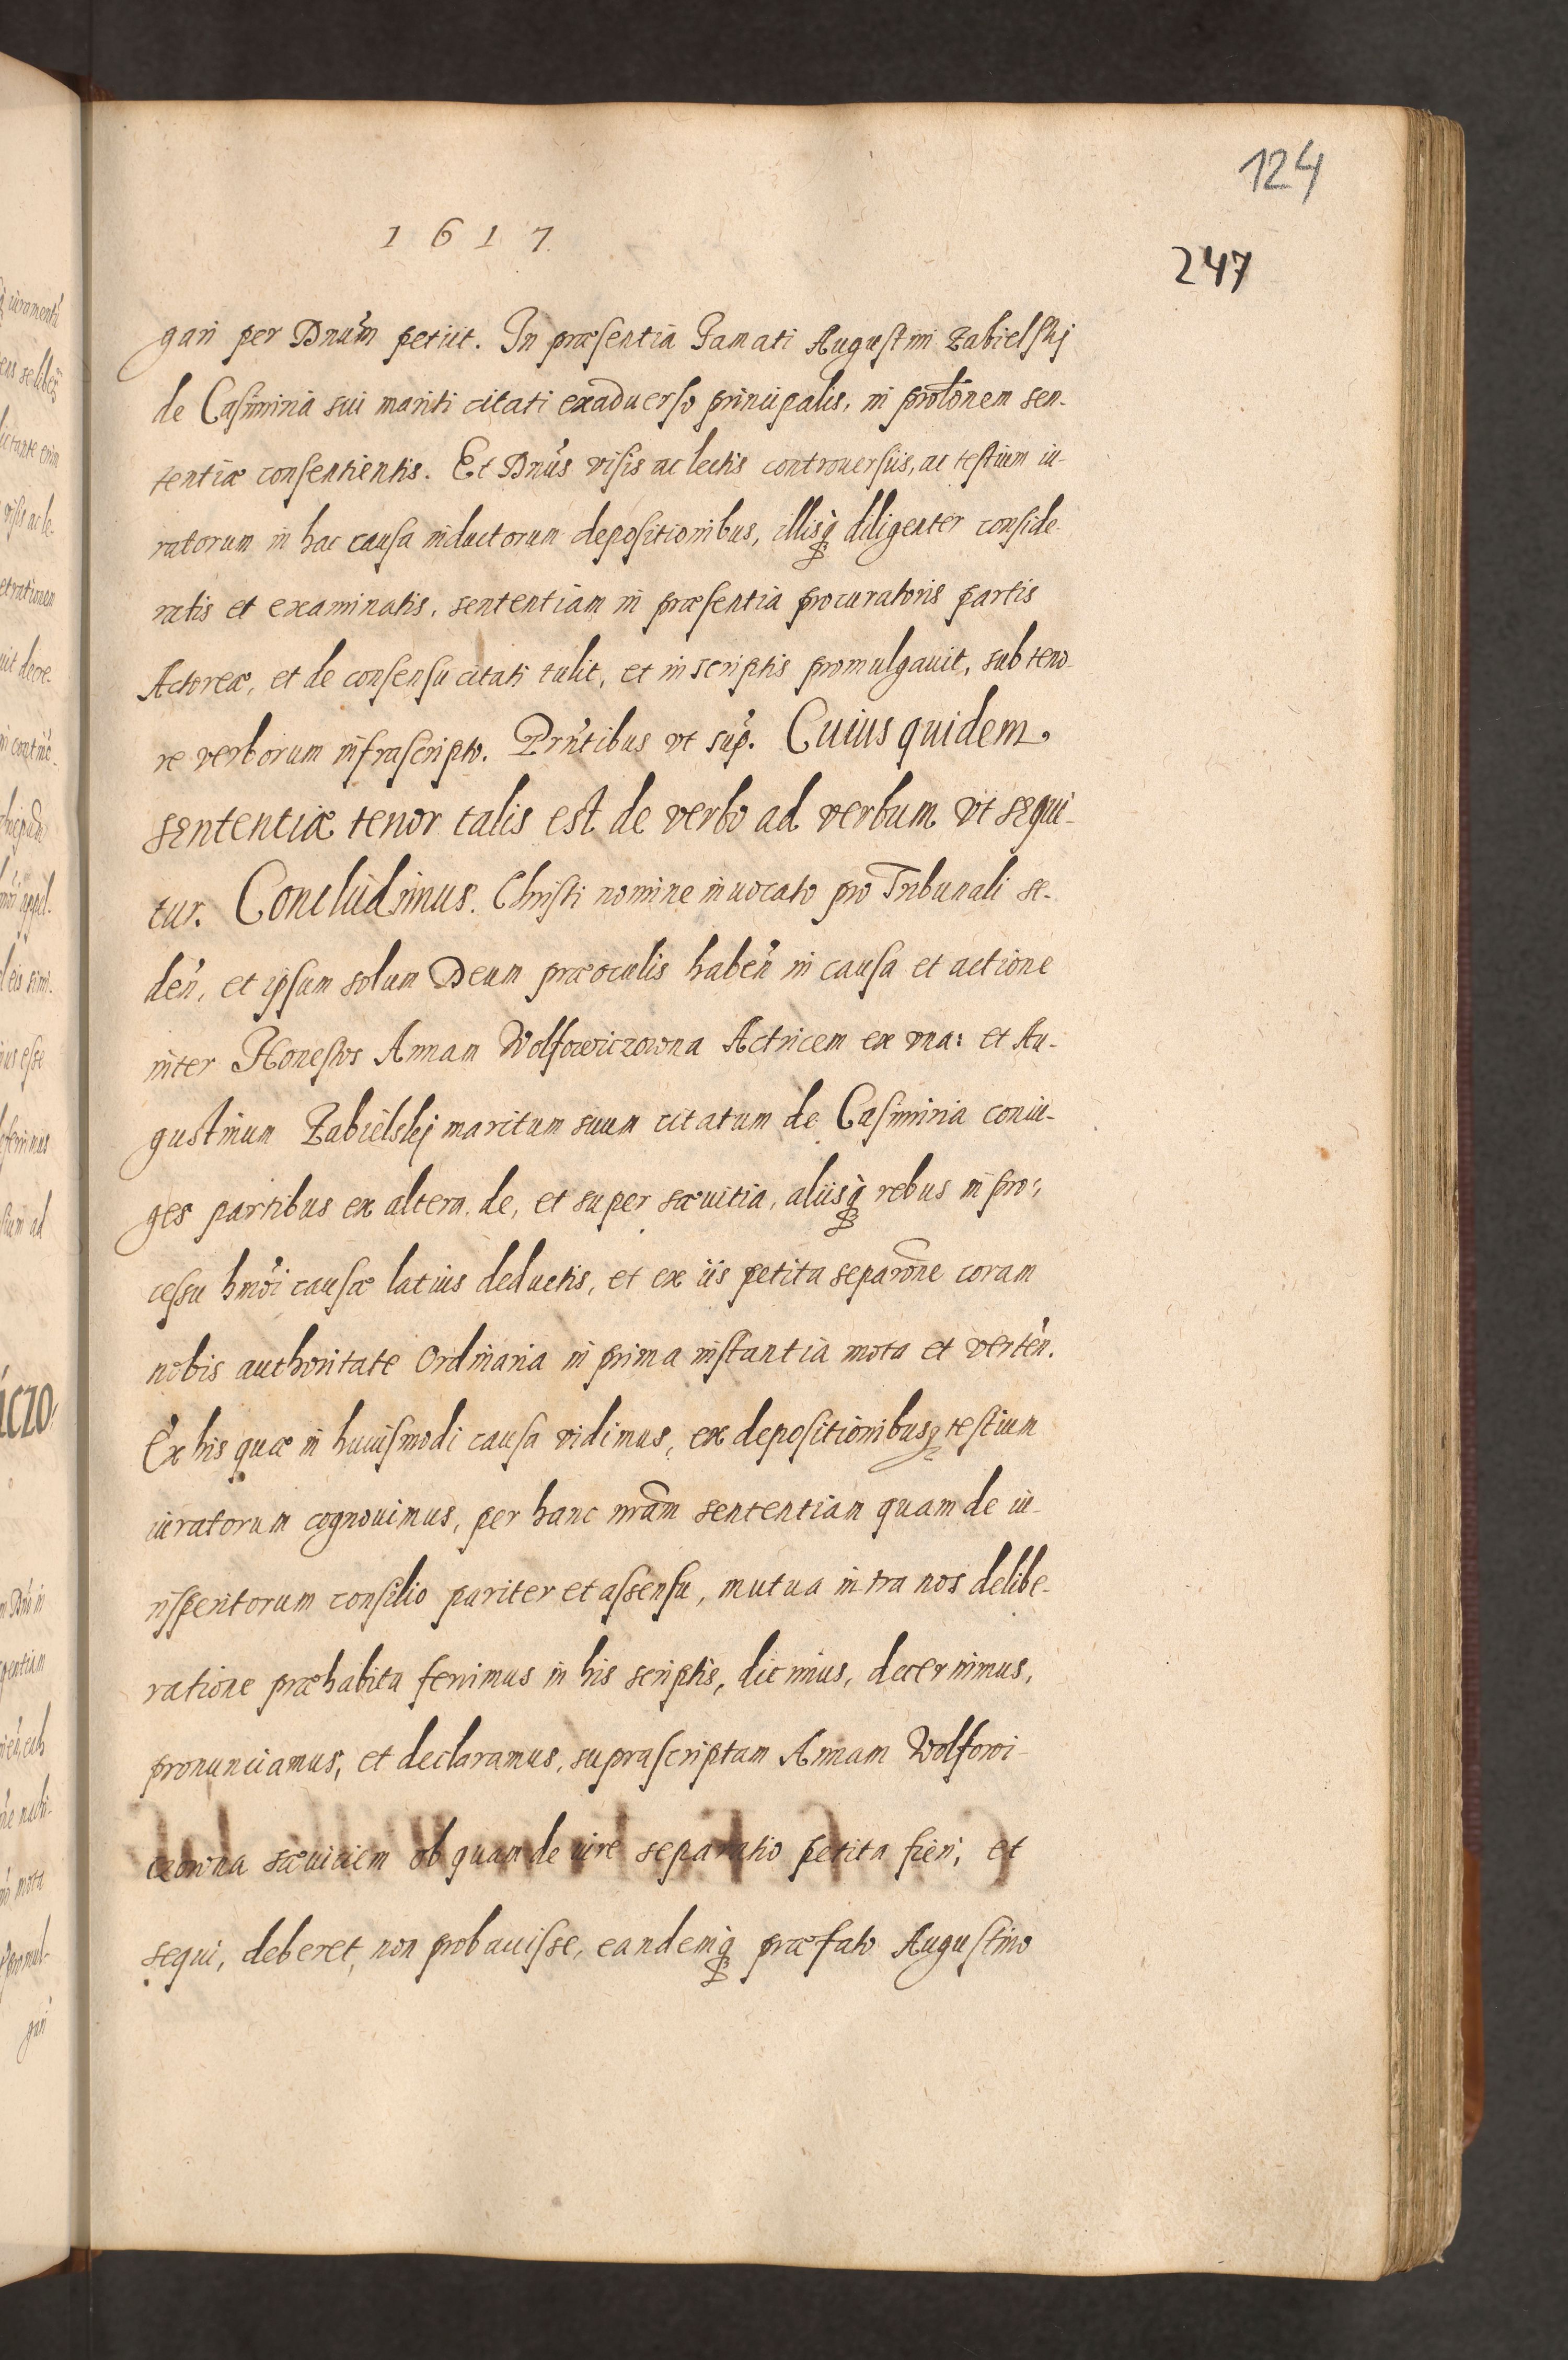 124
1617
247
gari per Dnum petiit. In præsentia Famati Augustini Zabielskj
de Casimiria sui mariti citati exaduerso principalis, in prolõnem sen-
tentiæ consentientis. Et Dnus visis ac lectis controuersiis, ac testium iu-
ratorum in hac causa inductorum depositionibus, illisq diligenter conside
ratis et examinatis, sententiam in præsentia procuratoris partis
Actoreæ, et de consensu citati tulit, et in scriptis promulgauit, sub teno-
re verborum infrascripto. Prntibus vt sup. Cuius quidem
sententiæ tenor talis est de verbo ad verbum vt sequi-
tur. Concludimus. Christi nomine inuocato pro Tribunali se-
den, et ipsum solum Deum præ oculis haben in causa et actione
inter Honestos Annam Wolfowiczowna Actricem ex vna: et Au-
gustinum Zabielskj maritum suum citatum de Casimiria coniu-
ges partibus ex altera. de, et super sæuitia, aliisq rebus in pro-
cessu hmoi causæ latius deductis, et ex iis petita separõne coram
nobis authoritate Ordinaria in prima instantia mota et verten.
Ex his quæ in huiusmodi causa vidimus, ex depositionibusq testium
iuratorum cognouimus, per hanc nram sententiam quam de iu-
risperitorum consilio pariter et assensu, mutua intra nos delibe-
ratione præhabita ferimus in his scriptis, dicimus, decernimus,
pronunciamus, et declaramus, suprascriptam Annam Wolfowi-
czowna sæuiciem ob quam de iure separatio petita fieri, et
sequi, deberet, non probauisse, eandemq præfato Augustino